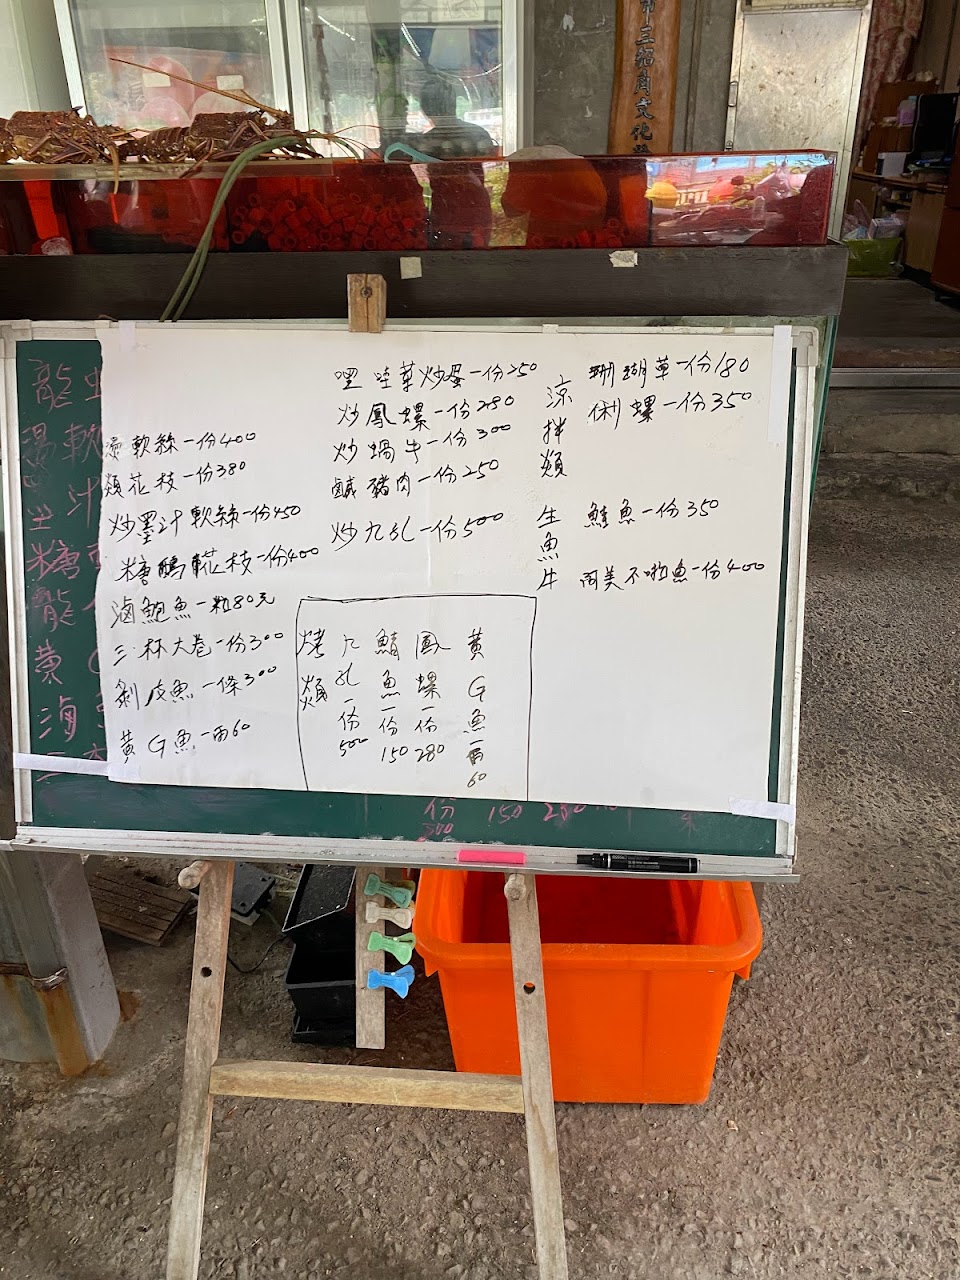 市三貂角文化
龍虫
燙軟
汁
糖
龍
黃G
滷
三
燙軟絲一份400
類花枝一份380
炒墨汁軟絲一份450
糖醋花枝一份400
滷鮑魚一粒80元
三杯大卷一份300
剝皮魚一條300
黃G魚一兩60
哩哇菜炒蛋一份250
炒鳳螺一份280
炒蝸牛一份300
鹹豬肉一份250
炒九孔一份500
涼拌類
珊瑚草一份180
俐螺一份350
生魚片
鮭魚一份350
阿美不啦魚一份400
烤類
九孔一份500
鯖魚一份150
鳳螺一份280
黃G魚一兩60
份 150 280
500